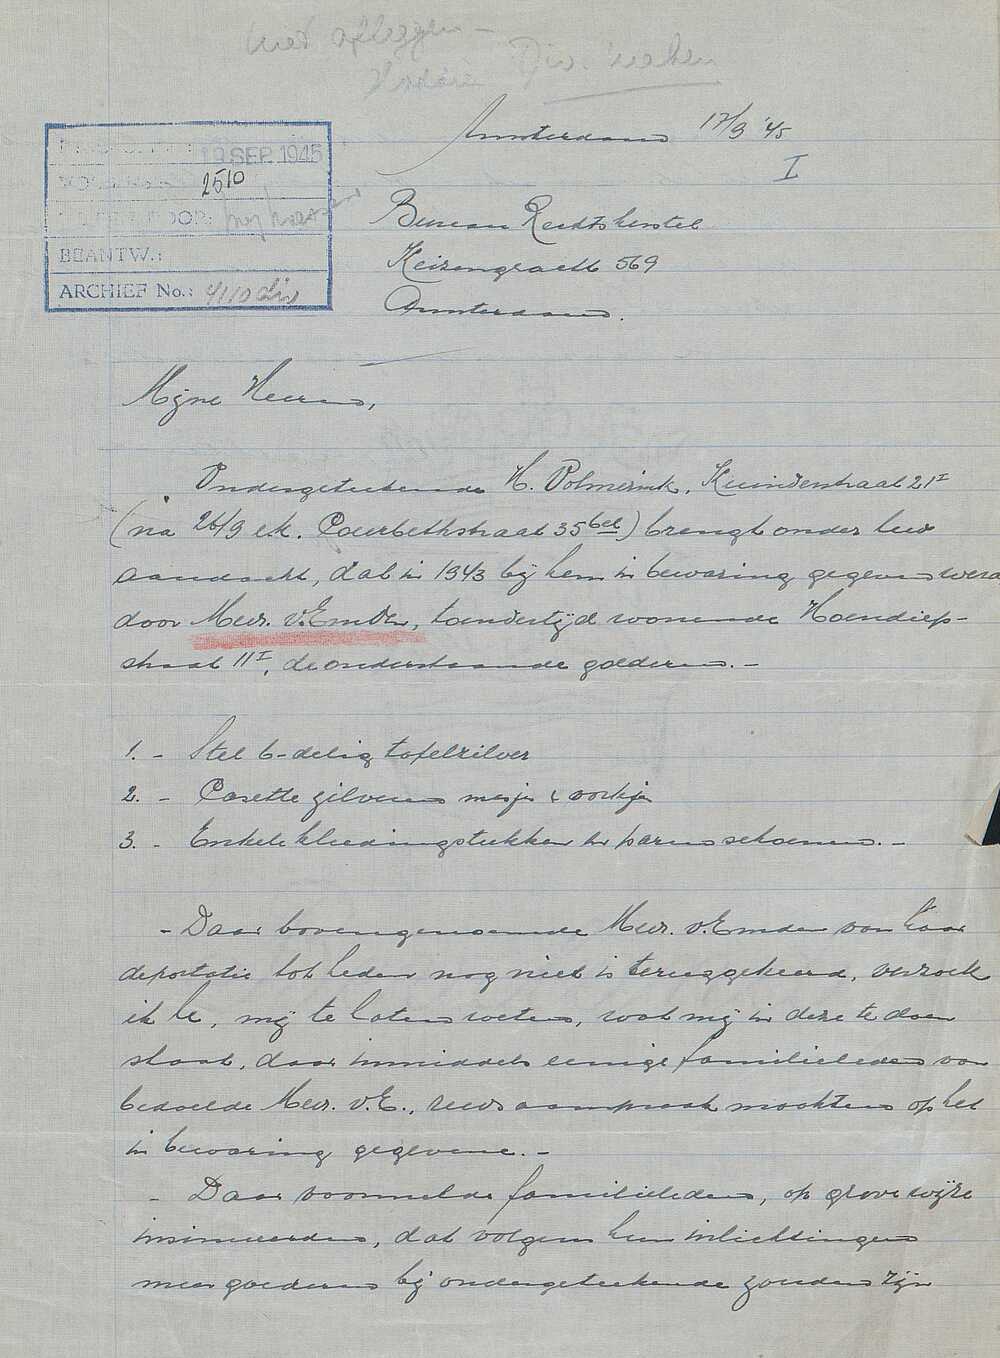 niet afleggen -
Div. zaken
Amsterdam 17/9 '45
I
19 SEP. 1945
2510
DOOR:
BEANTW.:
ARCHIEF No.: 4110 div
Bureau Rechtsherstel
Keizersgracht 569
Amsterdam.
Mijne Heeren,
Ondergeteekende H. Polmerink, Kuinderstraat 21 I
(na 26/9 e.k. Courbethstraat 35 bel) brengt onder Uw
aandacht, dat in 1943 bij hem in bewaring gegeven werd
door Mevr. v. Emden, toendertijd wonende Hoendiep-
straat 11 I, de onderstaande goederen. -
1. - Stel 6-delig tafelzilver
2. - Casette zilveren mesjes & vorkjes
3. - Enkele kleedingstukken en paren schoenen. -
- Daar bovengenoemde Mevr. v. Emden van haar
deportatie tot heden nog niet is teruggekeerd, verzoek
ik U, mij te laten weten, wat mij in deze te doen
staat, daar inmiddels eenige familieleden van
bedoelde Mevr. v. E., reeds aanspraak maakten op het
in bewaring gegevene. -
- Daar voormelde familieleden, op grove wijze
insinueerden, dat volgens hun inlichtingen
meer goederen bij ondergeteekende zouden zijn